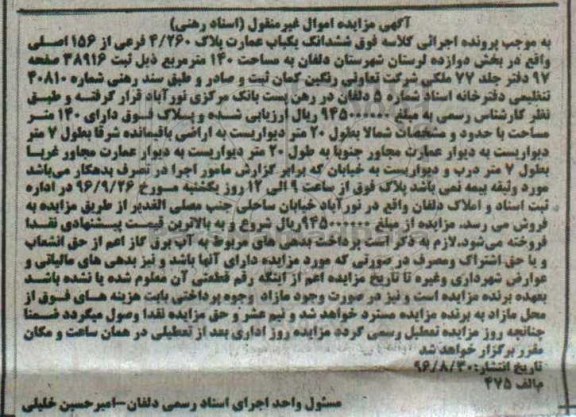 آگهی مزایده اموال غیرمنقول (اسناد رهنی)
به موجب پرونده اجرائی کلاسه فوق ششدانگ یکباب عمارت پلاک ۴/۲۶۰ فرعی از ۱۵۶ اصلی
واقع در بخش دوازده لرستان شهرستان دلفان به مساحت ۱۴۰ مترمربع ذیل ثبت ۳۸۹۱۶ صفحه
۹۷ دفتر جلد ۷۷ ملکی شرکت تعاونی رنگین کمان ثبت و صادر و طبق سند رهنی شماره ۴۰۸۱۰
تنظیمی دفترخانه اسناد شماره ۵ دلفان در رهن پست بانک مرکزی نورآباد قرار گرفته و طبق
نظر کارشناس رسمی به مبلغ ۹۴۵۰۰۰۰۰۰ ریال ارزیابی شده و پلاک فوق دارای ۱۴۰ متر
مساحت با حدود و مشخصات شمالا بطول ۲۰ متر دیواریست به اراضی باقیمانده شرقا بطول ۷ متر
دیواریست به دیوار عمارت مجاور جنوبا به طول ۲۰ متر دیواریست به دیوار عمارت مجاور غربا
بطول ۷ متر درب و دیواریست به خیابان که برابر گزارش مامور اجرا در تصرف بدهکار می‌باشد
مورد وثیقه بیمه نمی باشد پلاک فوق از ساعت ۹ الی ۱۲ روز یکشنبه مورخ ۹۶/۹/۲۶ در اداره
ثبت اسناد و املاک دلفان واقع در نورآباد خیابان ساحلی جنب مصلی الغدیر از طریق مزایده به
فروش می رسد، مزایده از مبلغ ۹۴۵۰۰۰۰۰۰ریال شروع و به بالاترین قیمت پیشنهادی نقدا
فروخته می‌شود.لازم به ذکر است پرداخت بدهی های مربوط به آب برق گاز اعم از حق انشعاب
و یا حق اشتراک ومصرف در صورتی که مورد مزایده دارای آنها باشد و نیز بدهی های مالیاتی و
عوارض شهرداری وغیره تا تاریخ مزایده اعم از اینکه رقم قطعتی آن معلوم شده یا نشده باشد
بعهده برنده مزایده است و نیز در صورت وجود مازاد وجوه پرداختی بابت هزینه های فوق از
محل مازاد به برنده مزایده مسترد خواهد شد و نیم عشر و حق مزایده نقدا وصول میگردد ضمنا
چنانچه روز مزایده تعطیل رسمی گردد مزایده روز اداری بعد از تعطیلی در همان ساعت و مکان
مقرر برگزار خواهد شد
تاریخ انتشار:۹۶/۸/۳۰
م‌الف ۴۷۵
مسئول واحد اجرای اسناد رسمی دلفان-امیرحسین خلیلی